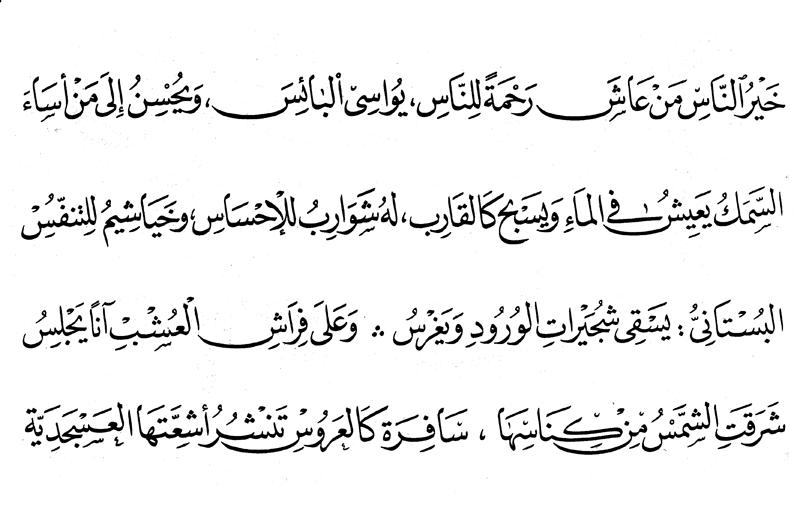 خَيْرُ النَّاسِ مَنْ عَاشَ رَحْمَةً لِلنَّاسِ، يُوَاسِى الْبَائِسَ، وَيُحْسِنُ إِلَى مَنْ أَسَاءَ
السَّمَكُ يَعِيشُ فِي المَاءِ وَيَسْبَح كَالقَارِب، لَهُ شَوَارِبُ لِلْإِحْسَاسِ، وَخَيَاشِيمُ لِلتَنفّسِ
البُسْتَانِىُّ: يَسْقِى شُجَيْرَاتِ الوُرُودِ وَيَغْرِسُ ∴ وَعَلَى فِرَاشِ الْعُشْبِ آنًا يَجْلِسُ
شَرَقَتِ الشَّمْسُ مِنْ كِنَاسِهَا، سَافِرَة كَالعَرُوسِ تَنْشُرُ أَشِعَّتَهَا العَسْجَدِيَّة